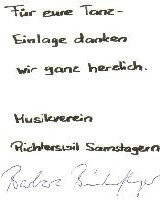 Für eure Tanz-
Einlage danken
wir ganz herzlich.
Musikverein
Richterswil Samstagern
Barbara